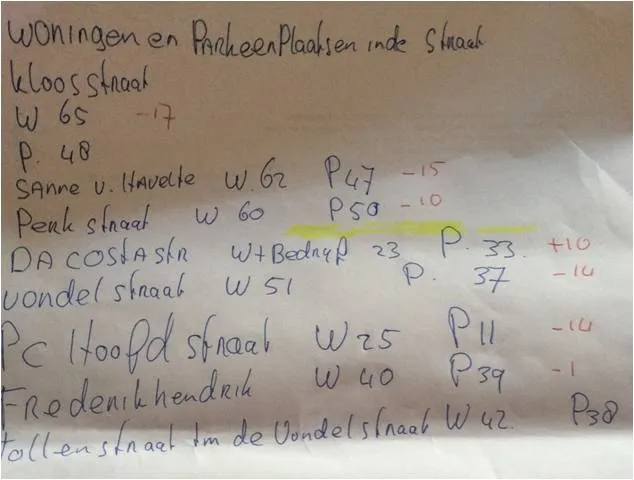 Woningen en Parkeenplaatsen inde straat
kloosstraat
W 65 -17
P. 48
SAnne v. HAvelte W. 62 P47 -15
Penk straat W 60 P50 -10
DA COSTA STR W+Bedrijf 23 P. 33. +10
vondelstraat W 51 P. 37 -14
PC Hoofd straat W25 P11 -14
FREDERIKhendrik W 40 P39 -1
tollenstraat tm de Vondelstraat W 42. P38